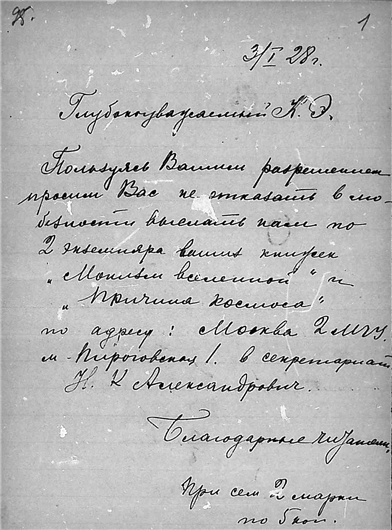 1
3/I 28г.
Глубокоуважаемый К. Э.
Пользуясь Вашим разрешением
просим Вас не отказать в лю-
безности выслать нам по
2 экземпляра ваших книжек
„Монизм вселенной“ и
„Причина космоса“
по адресу: Москва 2 МГУ.
М-Пироговская 1. в секретариат
Н. К Александрович.
Благодарные читатели.
При сем 2 марки
по 5 коп.